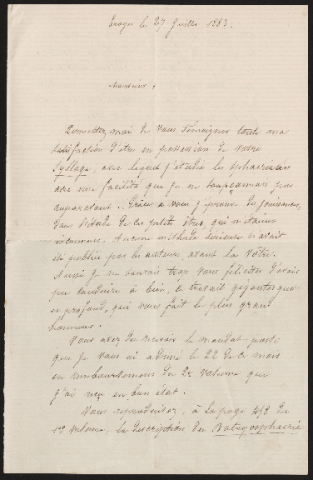 Troyes le 27 Juillet 1883.
Monsieur,
Permettez moi de vous témoigner toute ma
satisfaction d'être en possession de votre
Sylloge, avec lequel j'étudie les sphaeriacées
avec une facilité que je ne soupçonnais pas
auparavant. Grâce à vous j'éprouve des jouissances
dans l'étude de ces petits êtres, qui m'étaient
inconnues. Aucune méthode sérieuse n'avait
été publiée par les auteurs avant la vôtre.
Aussi je ne saurais trop vous féliciter d'avoir
pu conduire à bien, ce travail gigantesque
et profond, qui vous fait le plus grand
honneur.
Vous avez dû recevoir le mandat-poste
que je vous ai adressé le 22 de ce mois
en remboursement du 2e volume qui
j'ai reçu en bon état.
Vous reproduisez, à la page du
1er volume, la description du Botryosphaeria